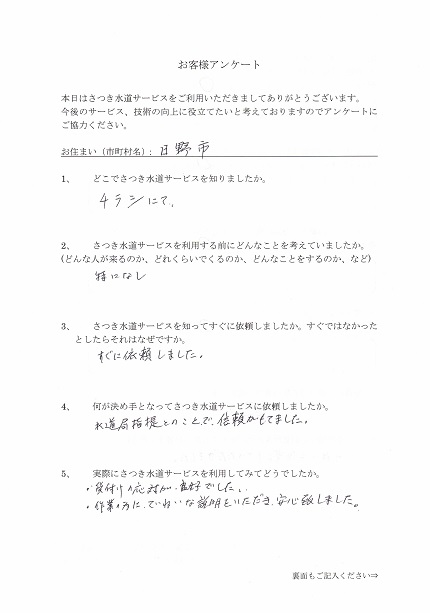 お客様アンケート
本日はさつき水道サービスをご利用いただきましてありがとうございます。
今後のサービス、技術の向上に役立てたいと考えておりますのでアンケートに
ご協力ください。
お住まい（市町村名）: 日野市
1、 どこでさつき水道サービスを知りましたか。
チラシにて。
2、 さつき水道サービスを利用する前にどんなことを考えていましたか。
(どんな人が来るのか、どれくらいでくるのか、どんなことをするのか、など)
特になし
3、 さつき水道サービスを知ってすぐに依頼しましたか。すぐではなかった
としたらそれはなぜですか。
すぐに依頼しました。
4、 何が決め手となってさつき水道サービスに依頼しましたか。
水道局指提とのことで、信頼がもてました。
5、 実際にさつき水道サービスを利用してみてどうでしたか。
・受付けの応対が、良好でした。
・作業の方に、ていねいな説明をいただき、安心致しました。
裏面もご記入ください⇒